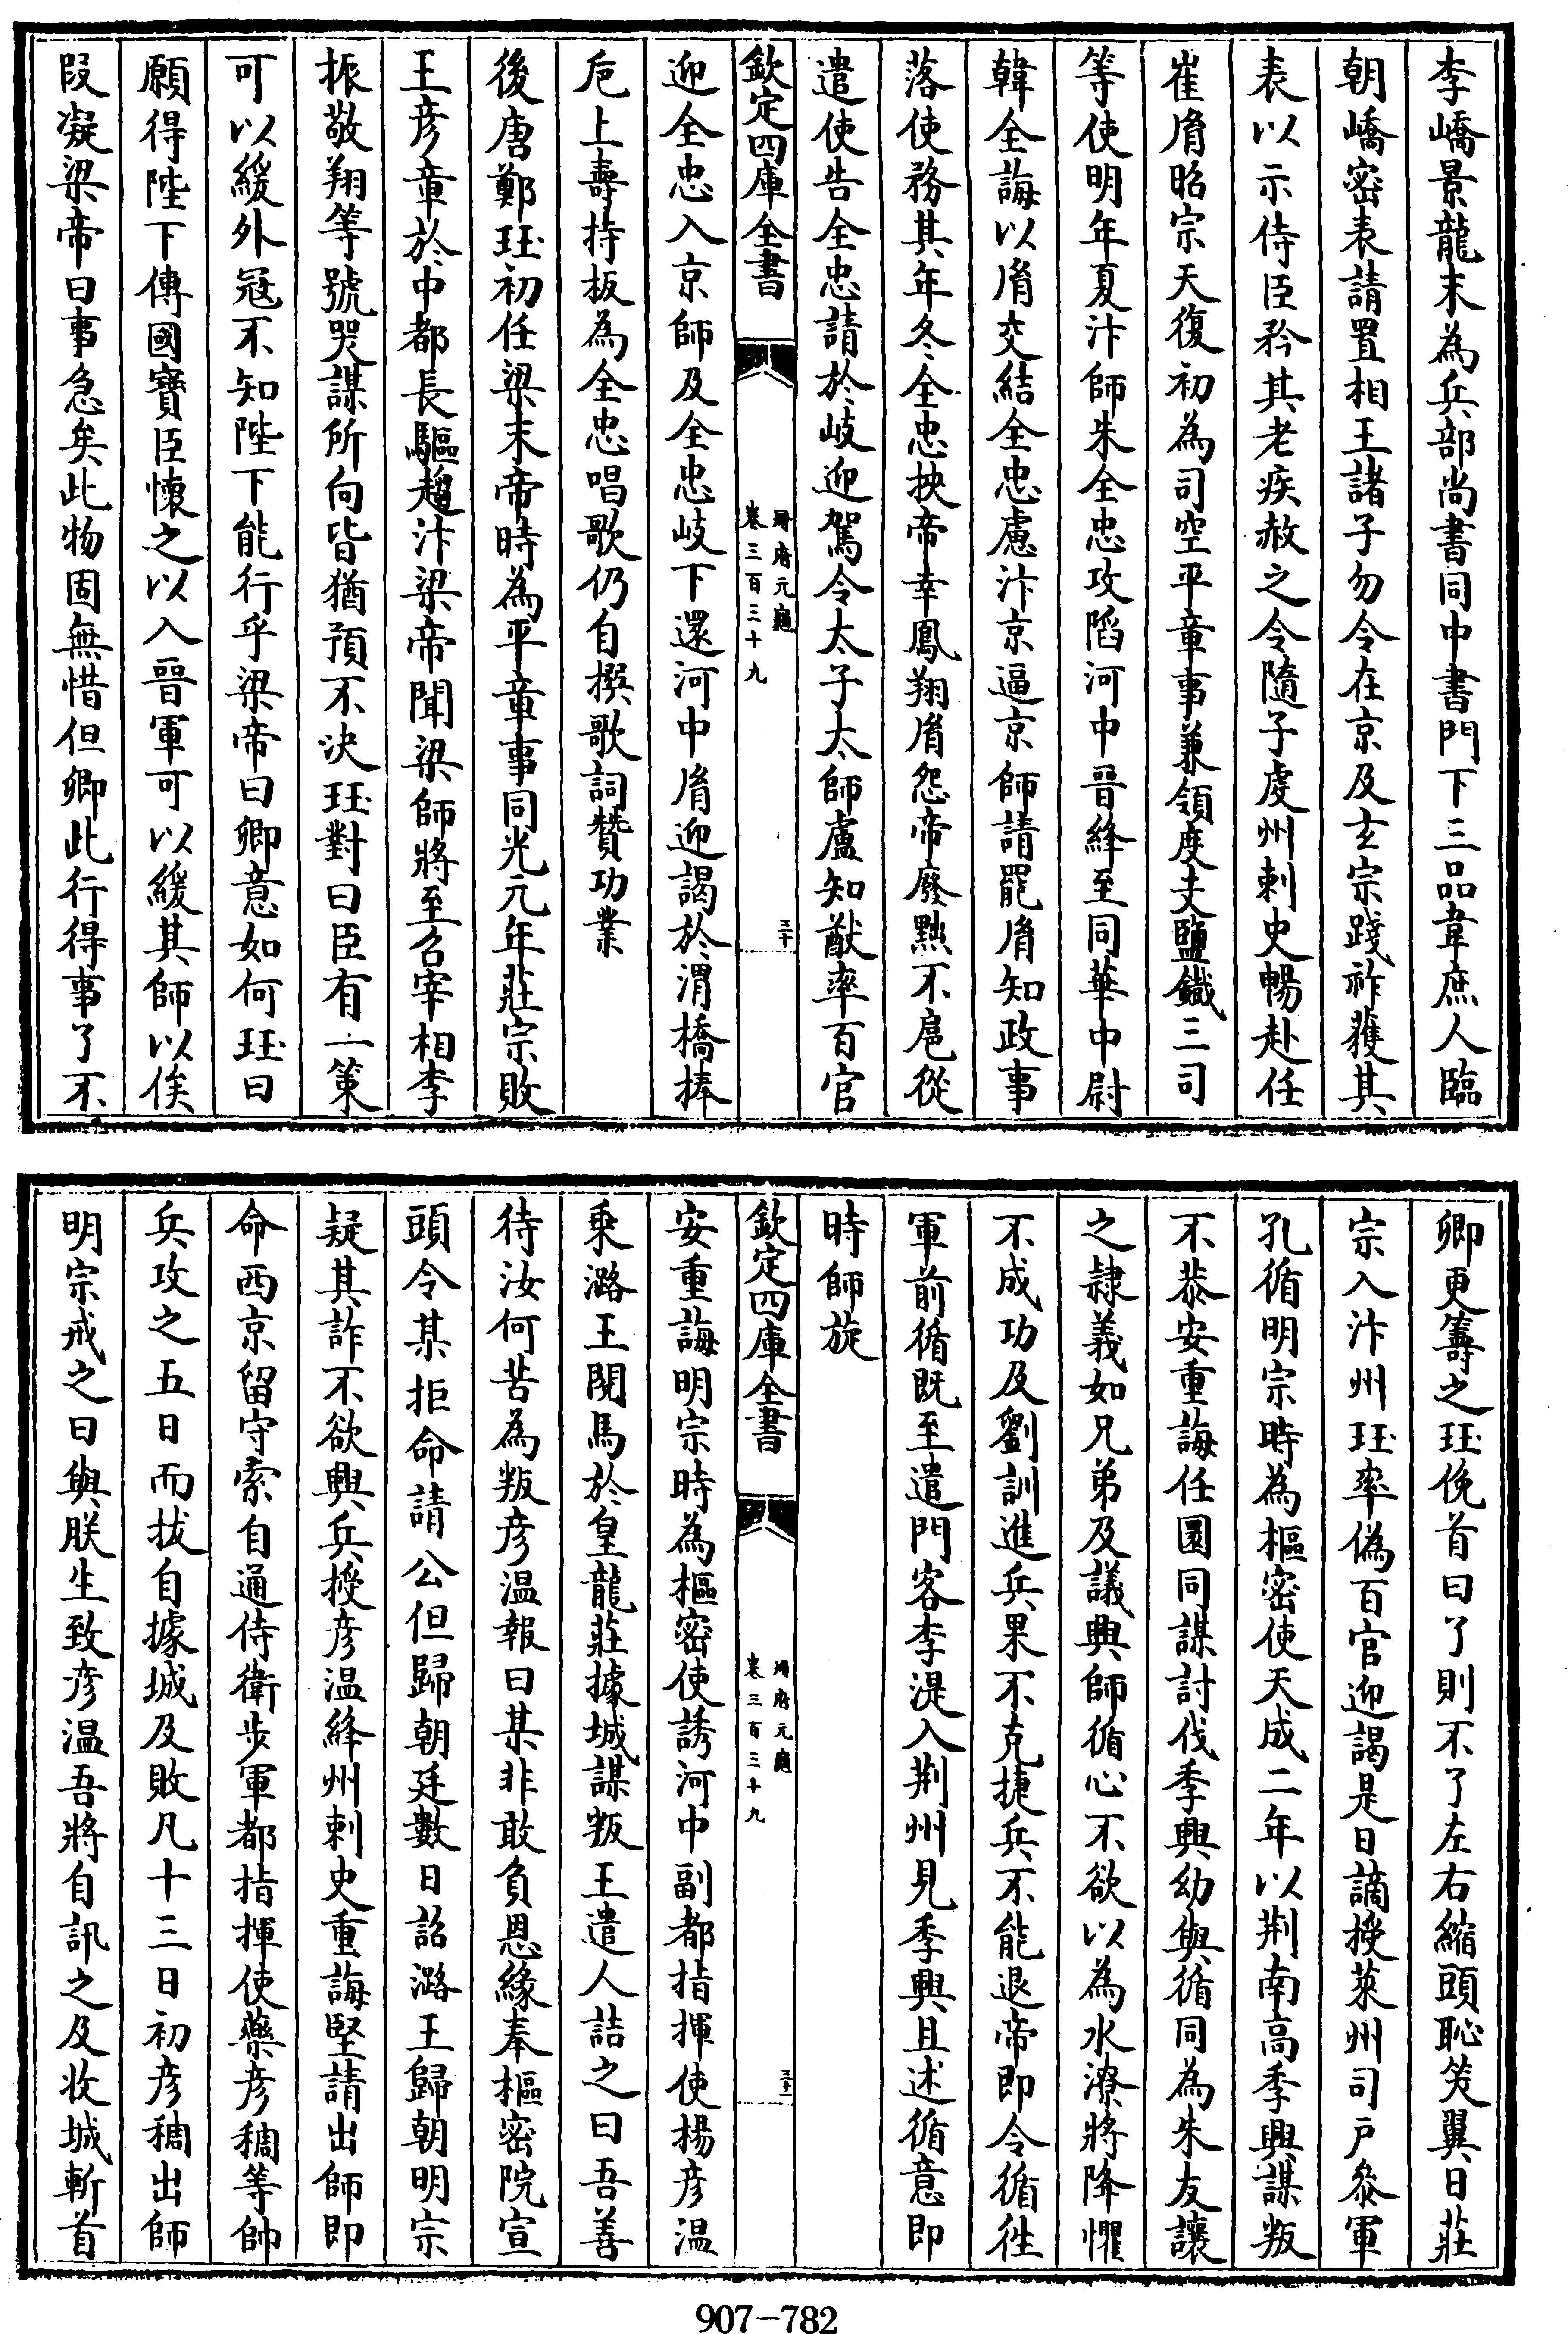 李嶠景龍末為兵部尚書同中書門下三品韋庶人臨
朝嶠密表請置相王諸子勿令在京及玄宗踐祚獲其
表以示侍臣矜其老疾赦之令隨子䖍州刺史暢赴任
崔𦙍昭宗天復初為司空平章事兼領度支鹽鐵三司
等使明年夏汴師朱全忠攻䧟河中晉絳至同華中尉
韓全誨以𦙍交結全忠慮汴京逼京師請罷𦙍知政事
落使務其年冬全忠挾帝幸鳳翔𦙍怨帝廢黜不扈從
遣使告全忠請於岐迎駕令太子太師盧知猷率百官
欽定四庫全書
冊府元龜
卷三百三十九
三十
迎全忠入京師及全忠岐下還河中𦙍迎謁於渭橋捧
巵上壽持板為全忠唱歌仍自撰歌詞贊功業
後唐鄭珏初任梁末帝時為平章事同光元年莊宗敗
王彦章於中都長驅趨汴梁帝聞梁師將至召宰相李
振敬翔等號哭謀所向皆猶預不決珏對曰臣有一策
可以緩外寇不知陛下能行乎梁帝曰卿意如何珏曰
願得陛下傳國寶臣懐之以入晉軍可以緩其師以俟
叚凝梁帝曰事急矣此物固無惜但卿此行得事了不
卿更籌之珏俛首曰了則不了左右縮頭恥笑翼日莊
宗入汴州珏率偽百官迎謁是日謫授萊州司户叅軍
孔循明宗時為樞密使天成二年以荆南高季興謀叛
不恭安重誨任圜同謀討伐季興幼與循同為朱友讓
之隷義如兄弟及議興師循心不欲以為水潦將降懼
不成功及劉訓進兵果不克捷兵不能退帝即令循徃
軍前循既至遣門客李湜入荆州見季興且述循意即
時師旋
欽定四庫全書
冊府元龜
卷三百三十九
三十一
安重誨明宗時為樞密使誘河中副都指揮使楊彦温
乗潞王閱馬於皇龍莊據城謀叛王遣人詰之曰吾善
待汝何苦為叛彦温報曰某非敢負恩緣奉樞密院宣
頭令某拒命請公但歸朝廷數日詔潞王歸朝明宗
疑其詐不欲興兵授彦温絳州刺史重誨堅請出師即
命西京留守索自通侍衛歩軍都指揮使藥彦稠等帥
兵攻之五日而拔自據城及敗凡十三日初彦稠出師
明宗戒之曰與朕生致彦温吾將自訊之及收城斬首
907-782